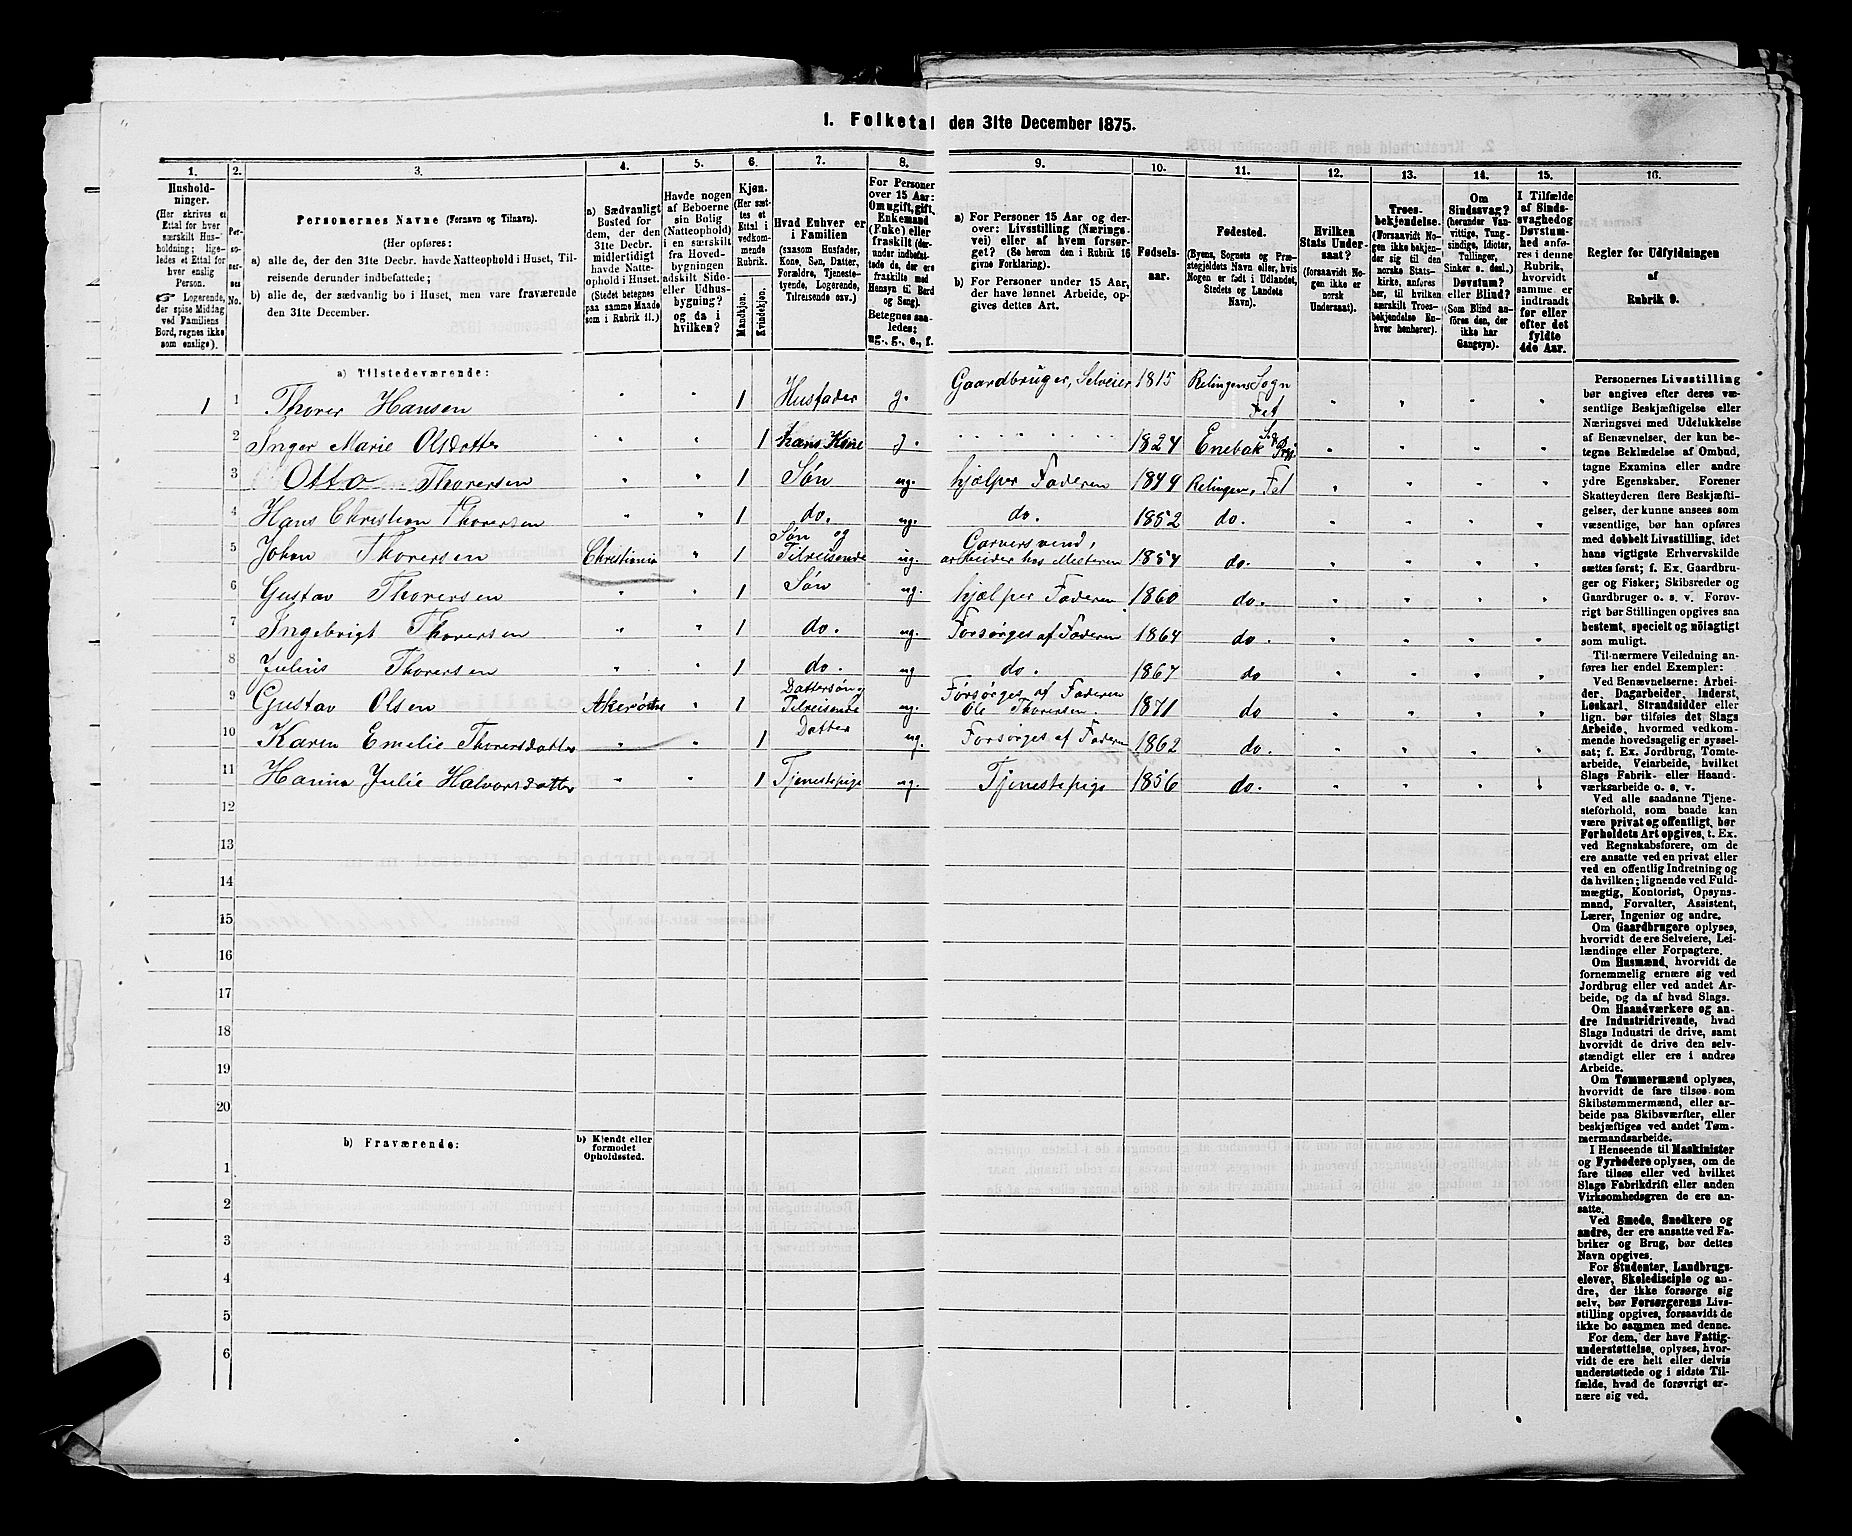 1. Folketal den 31te December 1875.
1. 2. 3. 4. 5. 6. 7. 8. 9. 10. 11. 12. 13. 14. 15. 16.
Hushold-
ninger.
(Her skrives et
Ettal for hver
særskilt Hus-
holdning; lige-
ledes et Ettal for
hver enslig
Person.
☞ Logerende,
der spise Middag
ved Familiens
Bord, regnes ikke
som enslige).
Personernes No.
Personernes Navne (Fornavn og Tilnavn).
(Her opføres:
a) alle de, der den 31te Decbr. havde Natteophold i Huset, Til-
reisende derunder indbefattede;
b) alle de, der sædvanlig bo i Huset, men vare fraværende
den 31te December.
a) Sædvanligt
Bosted for
dem, der den
31te Decbr.
midlertidigt
havde Natte-
ophold i Huset.
(Stedet betegnes
paa samme Maade
som i Rubrik 11.)
Havde nogen
af Beboerne
sin Bolig
(Natteophold)
i en særskilt
fra Hoved-
bygningen
adskilt Side-
eller Udhus-
bygning?
og da i
hvilken?
Kjøn.
(Her sæt-
tes et
Ettal i
vedkom-
mende
Rubrik.
Mandkjøn.
Kvindekjøn.
Hvad Enhver er
i Familien
(saasom Husfader,
Kone, Søn, Datter,
Forældre, Tjeneste-
tyende, Logerende,
Tilreisende osv.)
For Personer
over 15 Aar:
Om ugift, gift,
Enkemand
(Enke) eller
fraskilt (der-
under indbefat-
tede de, der ere
fraskilte med
Hensyn til Bord
og Seng).
Betegnes saa-
ledes:
ug., g., e., f.
a) For Personer 15 Aar og der-
over: Livsstilling (Nærings-
vei) eller af hvem forsør-
get? (Se herom den i Rubrik 16
givne Forklaring).
b) For Personer under 15 Aar,
der have lønnet Arbeide, op-
gives dettes Art.
Fødsels-
aar.
Fødested.
(Byens, Sognets og Præ-
stegjeldets Navn eller, hvis
Nogen er født i Udlandet,
Stedets og Landets
Navn).
Hvilken
Stats Under-
saat?
(forsaavidt No-
gen ikke er
norsk
Undersaat).
Troes-
bekjendelse.
(Forsaavidt No-
gen ikke bekjen-
der sig til den
norske Stats-
kirke, anføres
her, til hvilken
særskilt Troes-
bekjendelse En-
hver henhører).
Om
Sindssvag?
(herunder Van-
vittige, Tung-
sindige, Idioter,
Tullinger,
Sinker o. desl.)
Døvstum?
eller Blind?
(Som Blind an-
føres den, der
ikke har
Gangsyn).
I Tilfælde
af Sinds-
svaghed og
Døvstum-
hed anfø-
res i denne
Rubrik,
hvorvidt
samme er
indtraadt
før eller
efter det
fyldte
4de Aar.
Regler for Udfyldningen
af
Rubrik 9.
a) Tilstedeværende:
1 1 Thorer Hansen " " 1 Husfader g. Gaardbruger, Selveier 1815 Relingens Sogn Fet
2 Inger Marie Olsdatter " " 1 hans Kone g. 1824 Enebak S. & Prgj.
3 Otto Thorersen " " 1 Søn ug. hjælper Faderen 1849 Relingen, Fet
4 Hans Christian Thorersen " " 1 do. ug. do. 1852 do.
5 Johan Thorersen Christiania " 1 Søn og Tilreisende ug. Garversvend, arbeider hos Mesteren 1854 do.
6 Gustav Thorersen " " 1 Søn ug. hjælper Faderen 1860 do.
7 Ingebrigt Thorersen " " 1 do. ug. Forsørges af Faderen 1864 do.
8 Julius Thorersen " " 1 do. ug do. 1867 do
9 Gustav Olsen " 1 Dattersøn, Tilreisende ug. Forsørges af Faderen Ole Thorersen. 1871 do
10 Karen Emelie Thorersdatter " " 1 Datter ug. Forsørges af Faderen 1862 do.
11 Hanna Julie Halvorsdatter " " 1 Tjenestepige ug. Tjenestepige 1856 do.
12
13
14
15
16
17
18
19
20
b) Fraværende:
b) Kjendt eller
formodet
Opholdssted.
1
2
3
4
5
6
Personernes Livsstilling
bør angives efter deres væ-
sentlige Beskjæftigelse eller
Næringsvei med Udelukkelse
af Benævnelser, der kun be-
tegne Beklædelse af Ombud,
tagne Examina eller andre
ydre Egenskaber. Forener
Skatteyderen flere Beskjæfti-
gelser, der kunne ansees som
væsentlige, bør han opføres
med dobbelt Livsstilling, idet
hans vigtigste Erhvervskilde
sættes først; f. Ex. Gaardbru-
ger og Fisker; Skibsreder og
Gaardbruger o. s. v. Forøv-
rigt bør Stillingen opgives saa
bestemt, specielt og nøiagtigt
som muligt.
Til nærmere Veiledning an-
føres her endel Exempler:
Ved Benævnelserne: Arbei-
der, Dagarbeider, Inderst,
Løskarl, Strandsidder eller
lign. bør tilføies det Slags
Arbeide, hvormed vedkom-
mende hovedsagelig er syssel-
sat; f. Ex. Jordbrug, Tomte-
arbeide, Veiarbeide, hvilket
Slags Fabrik- eller Haand-
værksarbeide o. s. v.
Ved alle saadanne Tjene-
steforhold, som baade kan
være privat og offentligt, bør
Forholdets Art opgives, t. Ex.
ved Regnskabsførere, om de
ere ansatte ved en privat eller
ved en offentlig Indretning og
da hvilken; lignende ved Fuld-
mægtig, Kontorist, Opsyns-
mand, Forvalter, Assistent,
Lærer, Ingeniør og andre.
Om Gaardbrugere oplyses,
hvorvidt de ere Selveiere, Lei-
lændinge eller Forpagtere.
Om Husmænd, hvorvidt de
fornemmelig ernære sig ved
Jordbrug eller ved andet Ar-
beide, og da af hvad Slags.
Om Haandværkere og an-
dre Industridrivende, hvad
Slags Industri de drive, samt
hvorvidt de drive den selv-
stændigt eller ere i andres
Arbeide.
Om Tømmermænd oplyses,
hvorvidt de fare tilsøs som
Skibstømmermænd, eller ar-
beide paa Skibsværfter, eller
beskjæftiges ved andet Tøm-
mermandsarbeide.
I Henseende til Maskinister
og Fyrbødere oplyses, om de
fare tilsøs eller ved hvilket
Slags Fabrikdrift eller anden
Virksomhedsgren de ere an-
satte.
Ved Smede, Snedkere og
andre, der ere ansatte ved Fa-
briker og Brug, bør dettes
Navn opgives.
For Studenter, Landbrugs-
elever, Skoledisciple og an-
dre, der ikke forsørge sig
selv, bør Forsørgerens Livs-
stilling opgives, forsaavidt de
ikke bo sammen med denne.
For dem, der have Fattig-
understøttelse, oplyses, hvor-
vidt de ere helt eller delvis
understøttede og i sidste Til-
fælde, hvad de forøvrigt er-
nære sig ved.